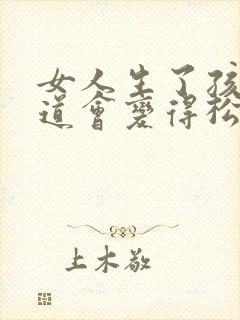 女人生了孩
道會變得松
上木敬